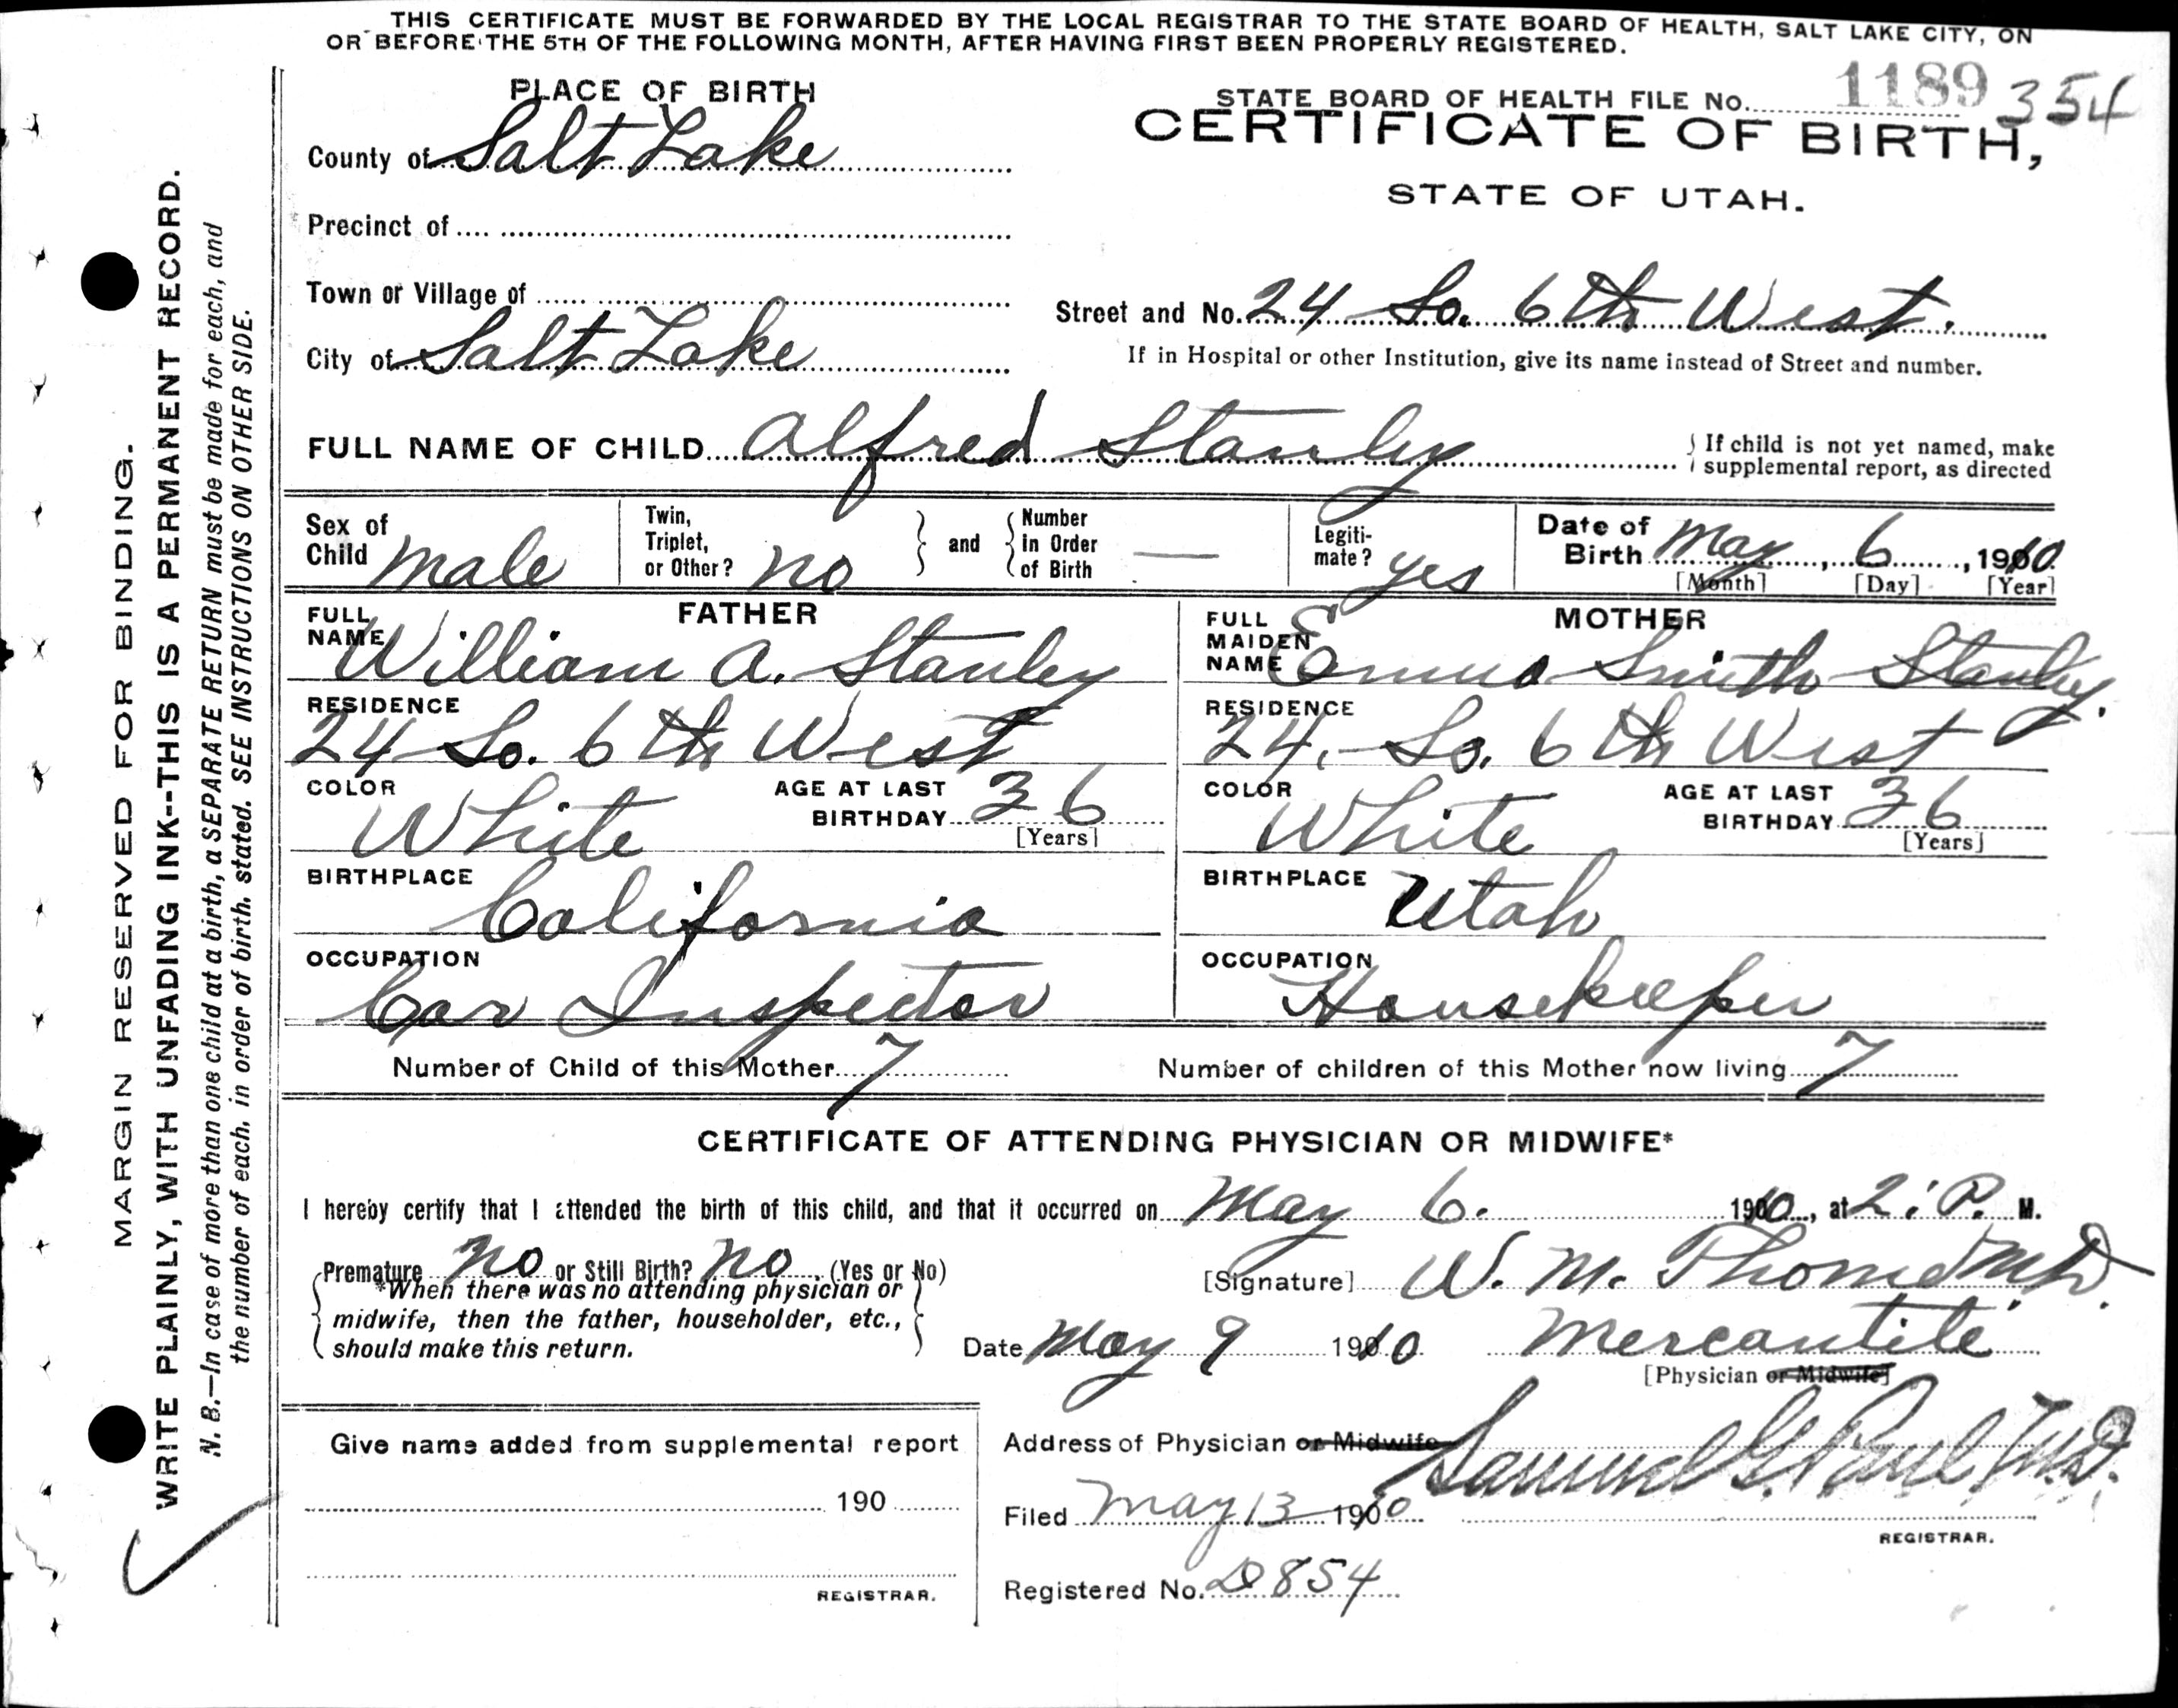 THIS CERTIFICATE MUST BE FORWARDED BY THE LOCAL REGISTRAR TO THE STATE BOARD OF HEALTH, SALT LAKE CITY, ON
OR BEFORE THE 5TH OF THE FOLLOWING MONTH, AFTER HAVING FIRST BEEN PROPERLY REGISTERED.
PLACE OF BIRTH
STATE BOARD OF HEALTH FILE No. 1189 354
CERTIFICATE OF BIRTH,
STATE OF UTAH.
County of Salt Lake
Precinct of
Town or Village of
Street and No. 24 So. 6th West.
City of Salt Lake
If in Hospital or other Institution, give its name instead of Street and number.
FULL NAME OF CHILD Alfred Stanley
If child is not yet named, make
supplemental report, as directed
Sex of Child male
Twin, Triplet, or Other? no
and Number in Order of Birth —
Legitimate? yes
Date of Birth May 6, 1910
[Month] [Day] [Year]
FATHER
FULL NAME William A. Stanley
RESIDENCE
24 So. 6th West
COLOR White
AGE AT LAST BIRTHDAY 36
[Years]
BIRTHPLACE
California
OCCUPATION
Car Inspector
MOTHER
FULL MAIDEN NAME Emma Smith Stanley.
RESIDENCE
24, So. 6th West
COLOR White
AGE AT LAST BIRTHDAY 36
[Years]
BIRTHPLACE Utah
OCCUPATION
Housekeeper
Number of Child of this Mother 7
Number of children of this Mother now living 7
CERTIFICATE OF ATTENDING PHYSICIAN OR MIDWIFE*
I hereby certify that I attended the birth of this child, and that it occurred on May 6. 1910, at 2: P. M.
Premature no or Still Birth? no (Yes or No)
*When there was no attending physician or
midwife, then the father, householder, etc.,
should make this return.
[Signature] W. M. M.D.
Date May 9 1910 Mercantile
[Physician or Midwife]
Give name added from supplemental report
190
REGISTRAR.
Address of Physician or Midwife
Samuel G. Paul M.D.
Filed May 13 1910
REGISTRAR.
Registered No. D854
MARGIN RESERVED FOR BINDING.
WRITE PLAINLY, WITH UNFADING INK--THIS IS A PERMANENT RECORD.
N. B.—In case of more than one child at a birth, a SEPARATE RETURN must be made for each, and
the number of each, in order of birth, stated. SEE INSTRUCTIONS ON OTHER SIDE.